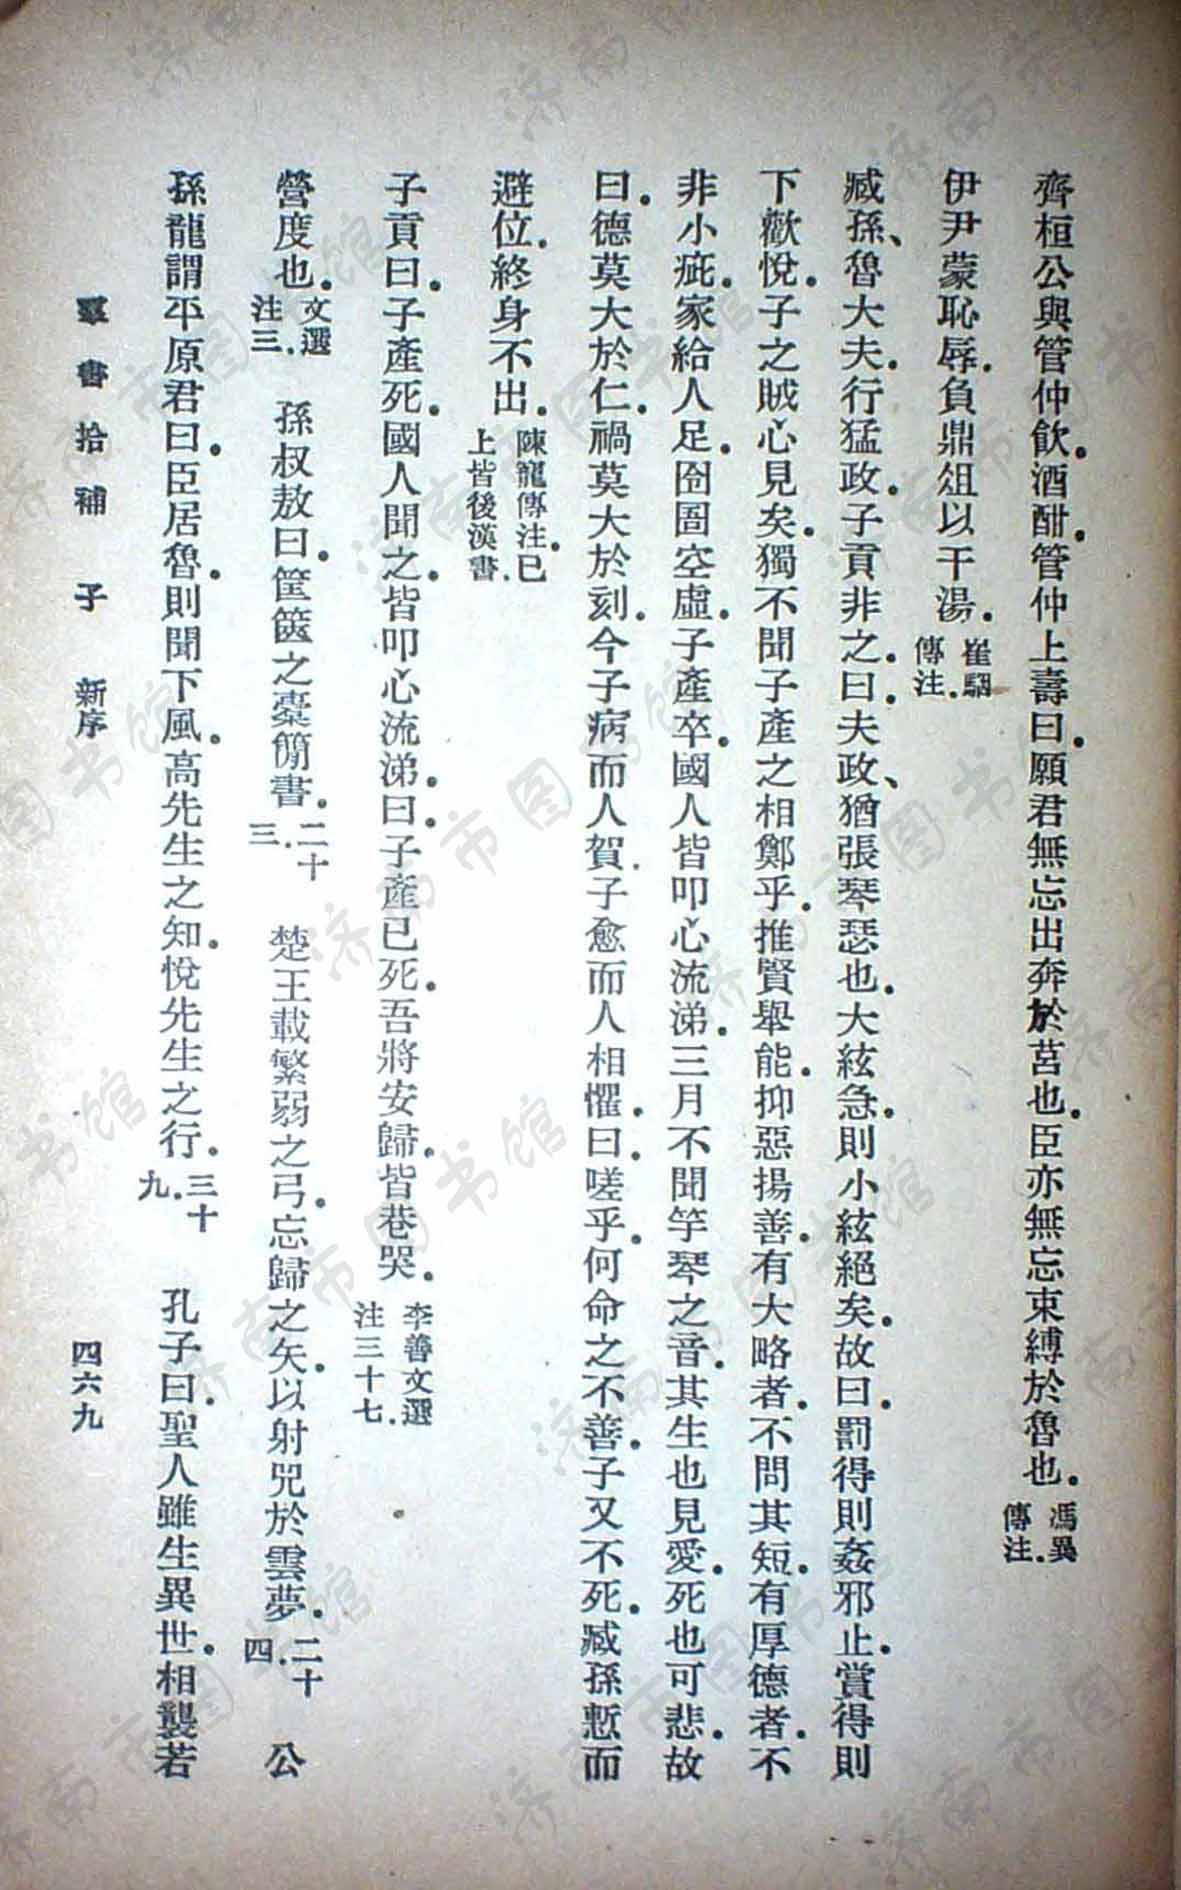 齊桓公與管仲飲。酒酣。管仲上壽曰。願君無忘出奔於莒也。臣亦無忘束縛於魯也。馮異傳注。
伊尹蒙恥辱。負鼎俎以干湯。崔駰傳注。
臧孫、魯大夫。行猛政。子貢非之。曰。夫政、猶張琴瑟也。大絃急。則小絃絕矣。故曰。罰得則姦邪止。賞得則
下歡悅。子之賊心見矣。獨不聞子產之相鄭乎。推賢舉能。抑惡揚善。有大略者。不問其短。有厚德者。不
非小疵。家給人足。囹圄空虛。子產卒。國人皆叩心流涕。三月不聞竽琴之音。其生也見愛。死也可悲。故
曰。德莫大於仁。禍莫大於刻。今子病而人賀。子愈而人相懼。曰。嗟乎。何命之不善。子又不死。臧孫慙而
避位。終身不出。陳寵傳注。已上皆後漢書。
子貢曰。子產死。國人聞之。皆叩心流涕。曰。子產已死。吾將安歸。皆巷哭。李善文選注三十七。
營度也。文選注三。 孫叔敖曰。筐篋之橐簡書。二十三。 楚王載繁弱之弓。忘歸之矢。以射兕於雲夢。二十四。 公
孫龍謂平原君曰。臣居魯。則聞下風。高先生之知。悅先生之行。三十九。 孔子曰。聖人雖生異世。相襲若
羣書拾補 子 新序 四六九
济南市图书馆